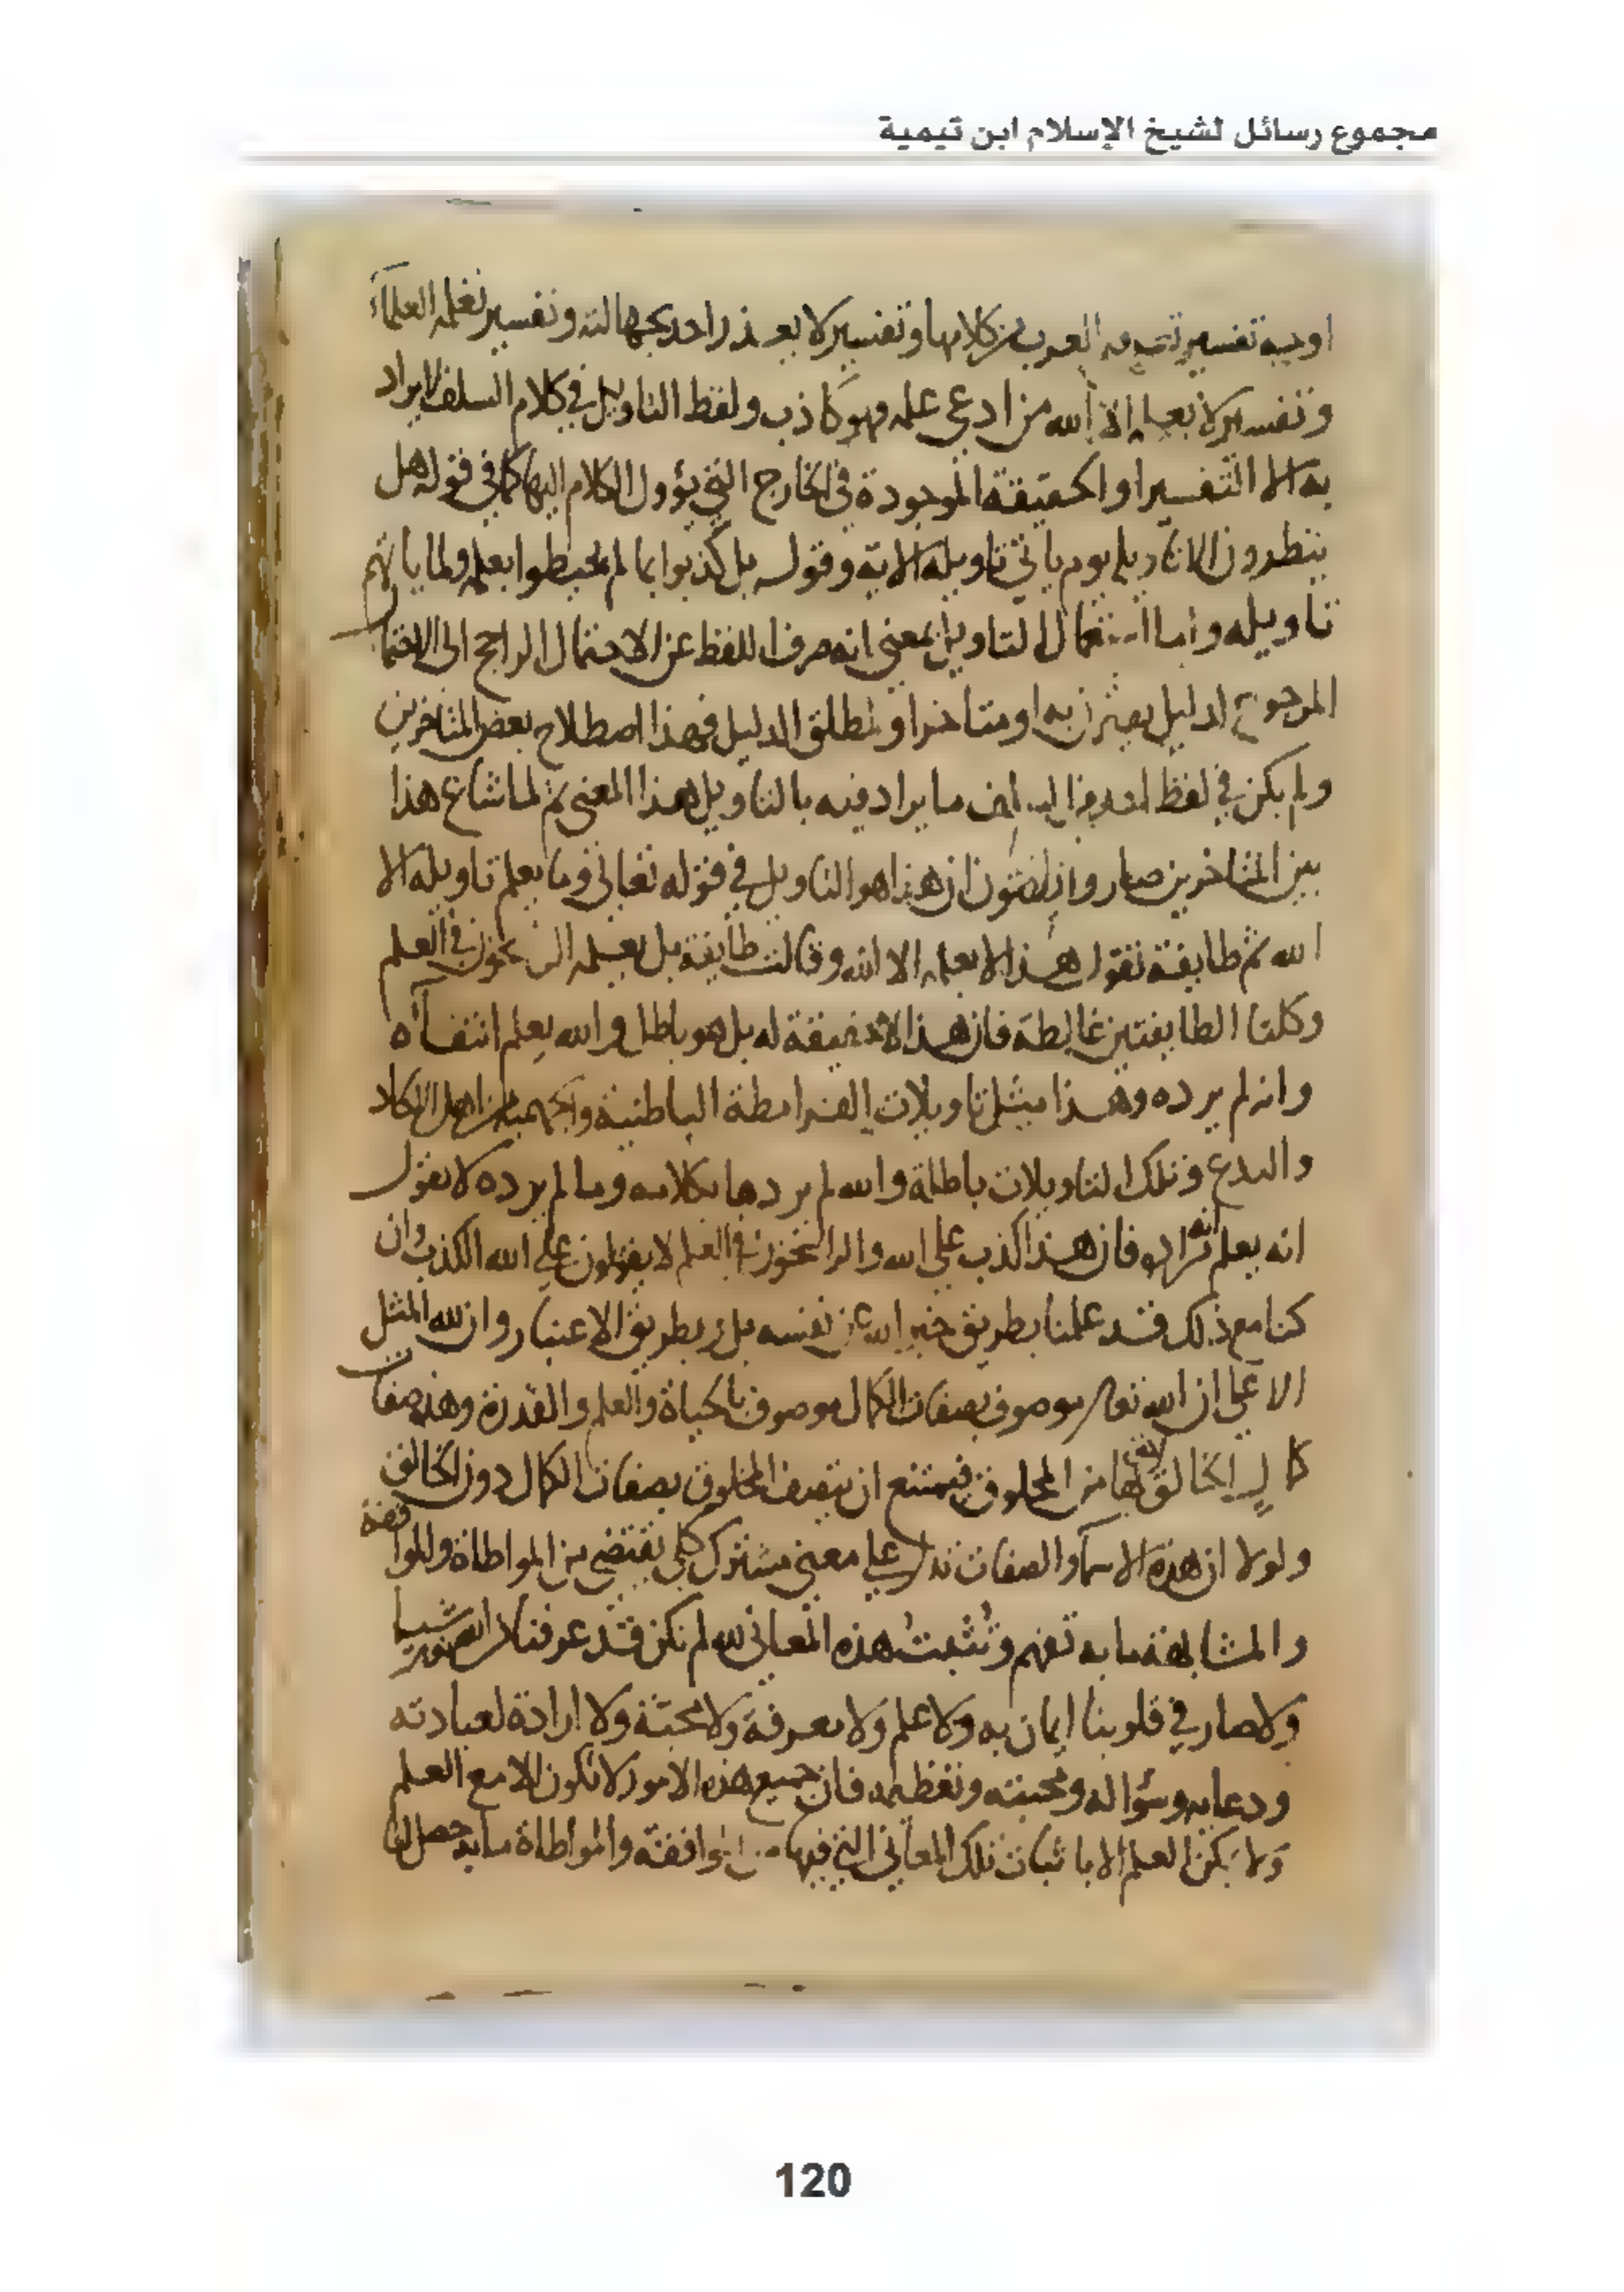 مجموع رسائل لشيخ الإسلام ابن تيمية
اوجه تفسير تعرفه العرب من كلامها وتفسير لا يعذر احد بجهالته وتفسير تعلمه العلماء
وتفسير لا يعلمه الا الله من ادعى علمه فهو كاذب ولفظ التاويل في كلام السلف لا يراد
به الا التفسير او الحقيقة الموجودة في الخارج التي يؤول الكلام اليها كما في قوله هل
ينظرون الا تاويله يوم ياتي تاويله الاية وقوله بل كذبوا بما لم يحيطوا بعلمه ولما ياتهم
تاويله واما استعمال التاويل بمعنى انه صرف اللفظ عن الاحتمال الراجح الى الاحتمال
المرجوح لدليل يقترن به او متاخر او لمطلق الدليل فهذا اصطلاح بعض المتاخرين
ولم يكن في لفظ احد من السلف ما يراد فيه بالتاويل هذا المعنى ثم لما شاع هذا
بين المتاخرين صاروا يظنون ان هذا هو التاويل في قوله تعالى وما يعلم تاويله الا
الله ثم طايفة تقول هذا لا يعلمه الا الله وقالت طايفة بل يعلمه الراسخون في العلم
وكلتا الطايفتين غالطة فان هذا لا حقيقة له بل هو باطل والله يعلم انتفاءه
وانه لم يرده وهذا مثل تاويلات القرامطة الباطنية والجهمية من اهل الالحاد
والبدع وتلك التاويلات باطلة والله لم يردها بكلامه وما لم يرده لا يقول
انه يعلم انه مراده فان هذا كذب على الله والراسخون في العلم لا يقولون على الله الكذب وان
كنا مع ذلك قد علمنا بطريق خبر الله عن نفسه بل وبطريق الاعتبار وان لله المثل
الاعلى ان الله تعالى موصوف بصفات الكمال موصوف بالحياة والعلم والقدرة وهذه صفات
كمال الخالق احق بها من المخلوق فيمتنع ان يتصف المخلوق بصفات الكمال دون الخالق
ولولا ان هذه الاسماء والصفات تدل على معنى مشترك كلي يقتضي من المواطاة والموافقة
والمشابهة ما به تفهم وتثبت هذه المعاني لله لم نكن قد عرفنا عن الله شيا
ولا صار في قلوبنا ايمان به ولا علم ولا معرفة ولا محبة ولا ارادة لعبادته
ودعايه وسؤاله ومحبته وتعظيمه فان جميع هذه الامور لا تكون الا مع العلم
ولا يمكن العلم الا باثبات تلك المعاني التي فيها من الموافقة والمواطاة ما به حصل لنا
120